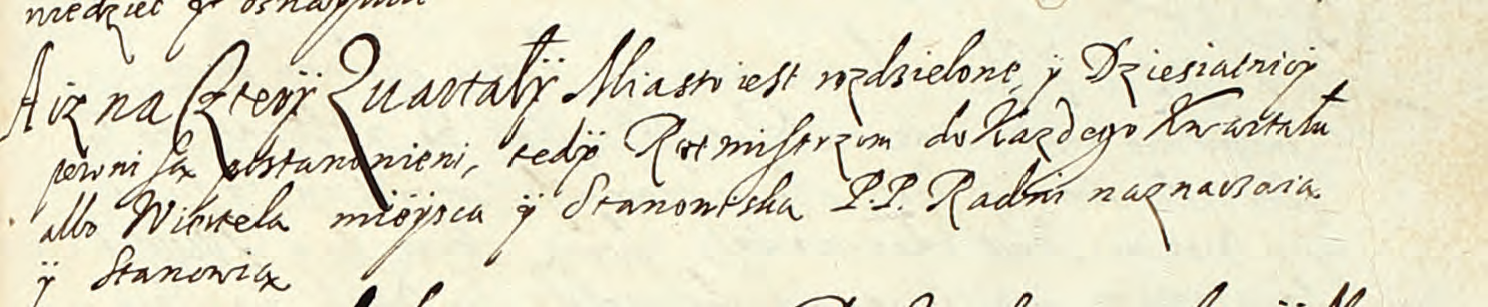 A iz na Cztery Quartały Miasto iest rozdzielone, y Dziesiatnicy
pewni są postanowieni, tedy Rotmistrzom do Kazdego Kwartału
albo Wiertela mieysca y Stanowiska P.P. Radni naznaczaią
y Stanowią